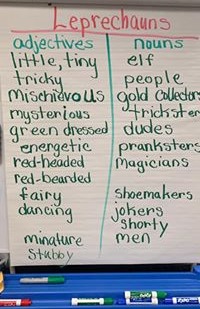 Leprechauns
adjectives
little, tiny
tricky
mischievous
mysterious
green dressed
energetic
red-headed
red-bearded
fairy
dancing
minature
stubby
nouns
elf
people
gold collectors
trickster
dudes
pranksters
magicians
shoemakers
jokers
shorty
men